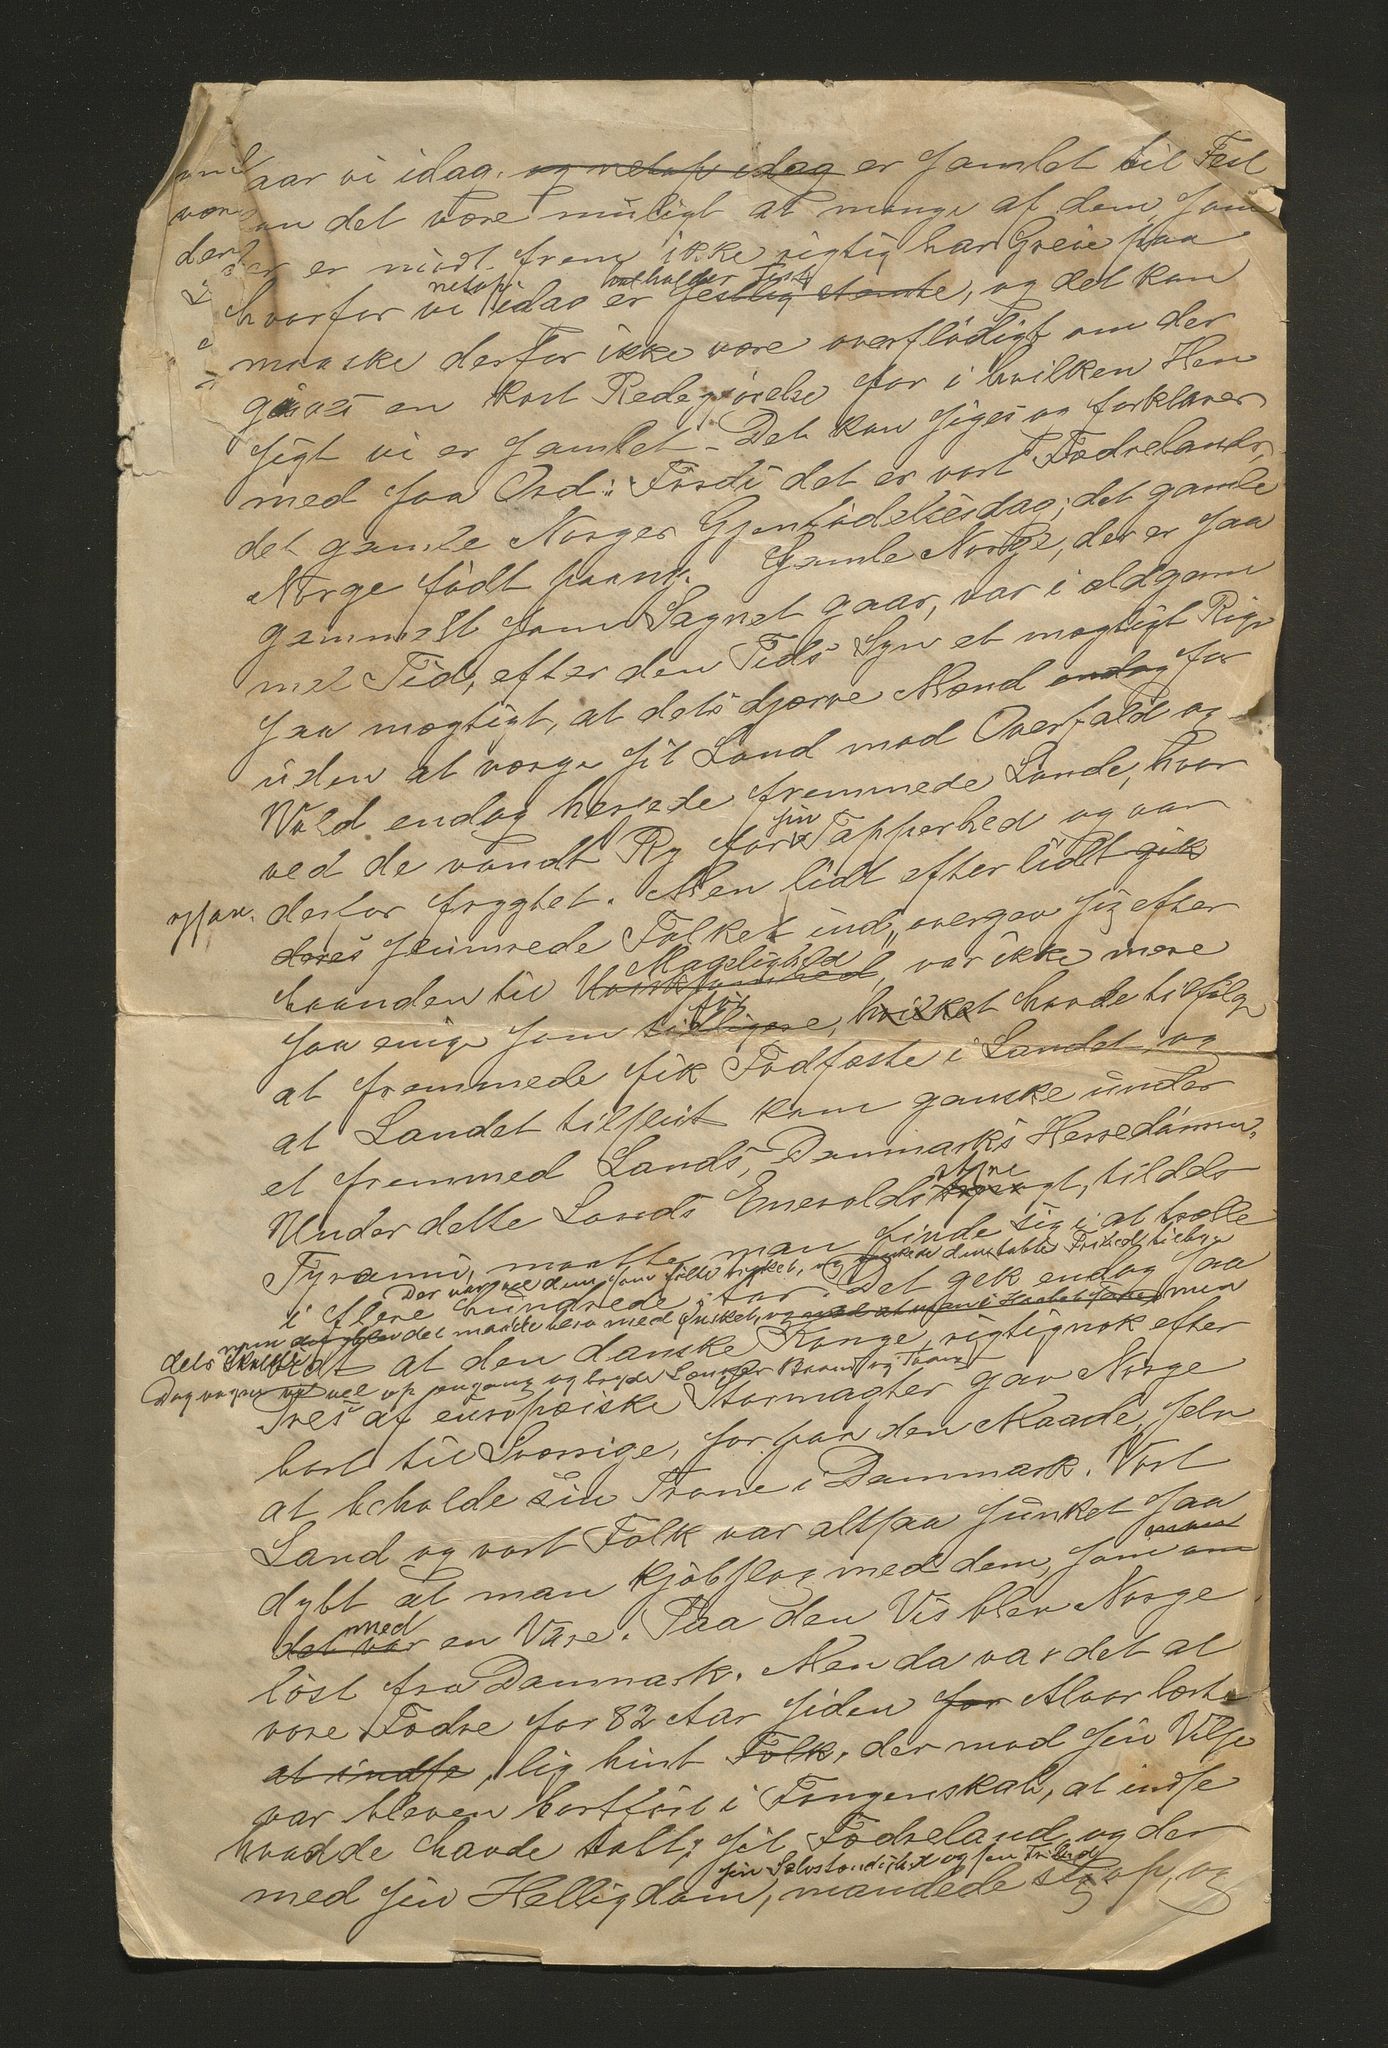 aar vi idag. og netop idag er samlet til Fest
an det være muligt at mange af dem, som
her er mødt frem ikke rigtig har Greie paa
netop holder Fest
hvorfor vi idag er festlig stemte, og det kan
maaske derfor ikke være overflødigt om der
gives en kort Redegjørelse for i hvilken Hen
sigt vi er samlet. Det kan siges og forklares
med faa Ord: Fordi det er vort Fædrelands,
det gamle Norges Gjenfødelsesdag; det gamle
Norge født paany. Gamle Norge, der er saa
gammelt som Sagnet gaar, var i ældgam
mel Tid, efter den Tids Syn et mægtigt Rige
saa mægtigt, at dets djærve Mænd endog for
uden at værge sit Land mod Overfald og
Vold endog herjede fremmede Lande, hvor
sin
ved de vandt Ry for Tapperhed og var
derfor frygtet. Men lidt efter lidt gik
ogsaa.
deres slumrede Folket ind, overgav sig efter
Magelighed
haanden til Uvirksomhed, var ikke mere
før
saa enige som tidligere, hvilket havde tilfølge
at fremmede fik Fodfæste i Landet, og
at Landet tilslut kom ganske under
et fremmed Lands, Danmarks Herredømme.
Under dette Lands Enevolds, tildels
Tyranni, maatte man finde sig i at trælle
Der var vel dem som følte Trykket, og ønskede den tabte Frihed tilbage
i flere hundrede Aar. Det gik endog saa
men det maatte bero med Ønsket,
vidt at den danske Konge, rigtignok efter
Dag vaagne vel op engang og bryde Lænker Baand og Tvang
Pres af europæiske Stormagter gav Norge
bort til Sverrige, for paa den Maade selv
at beholde sin Trone i Danmark. Vort
Land og vort Folk var altsaa sunket saa
dybt at man kjøbslog med dem, som om
med
det var en Vare. Paa den Vis blev Norge
løst fra Danmark. Men da var det at
vore Fædre for 82 Aar siden for Alvor lærte
at indse, lig hint Folk, der mod sin Vilje
var bleven bortført i Fangenskab, at indse
hvad de havde tabt; sit Fædreland og der
sin Selvstændighed og sin Frihed
med sin Helligdom, mandede sig op, og